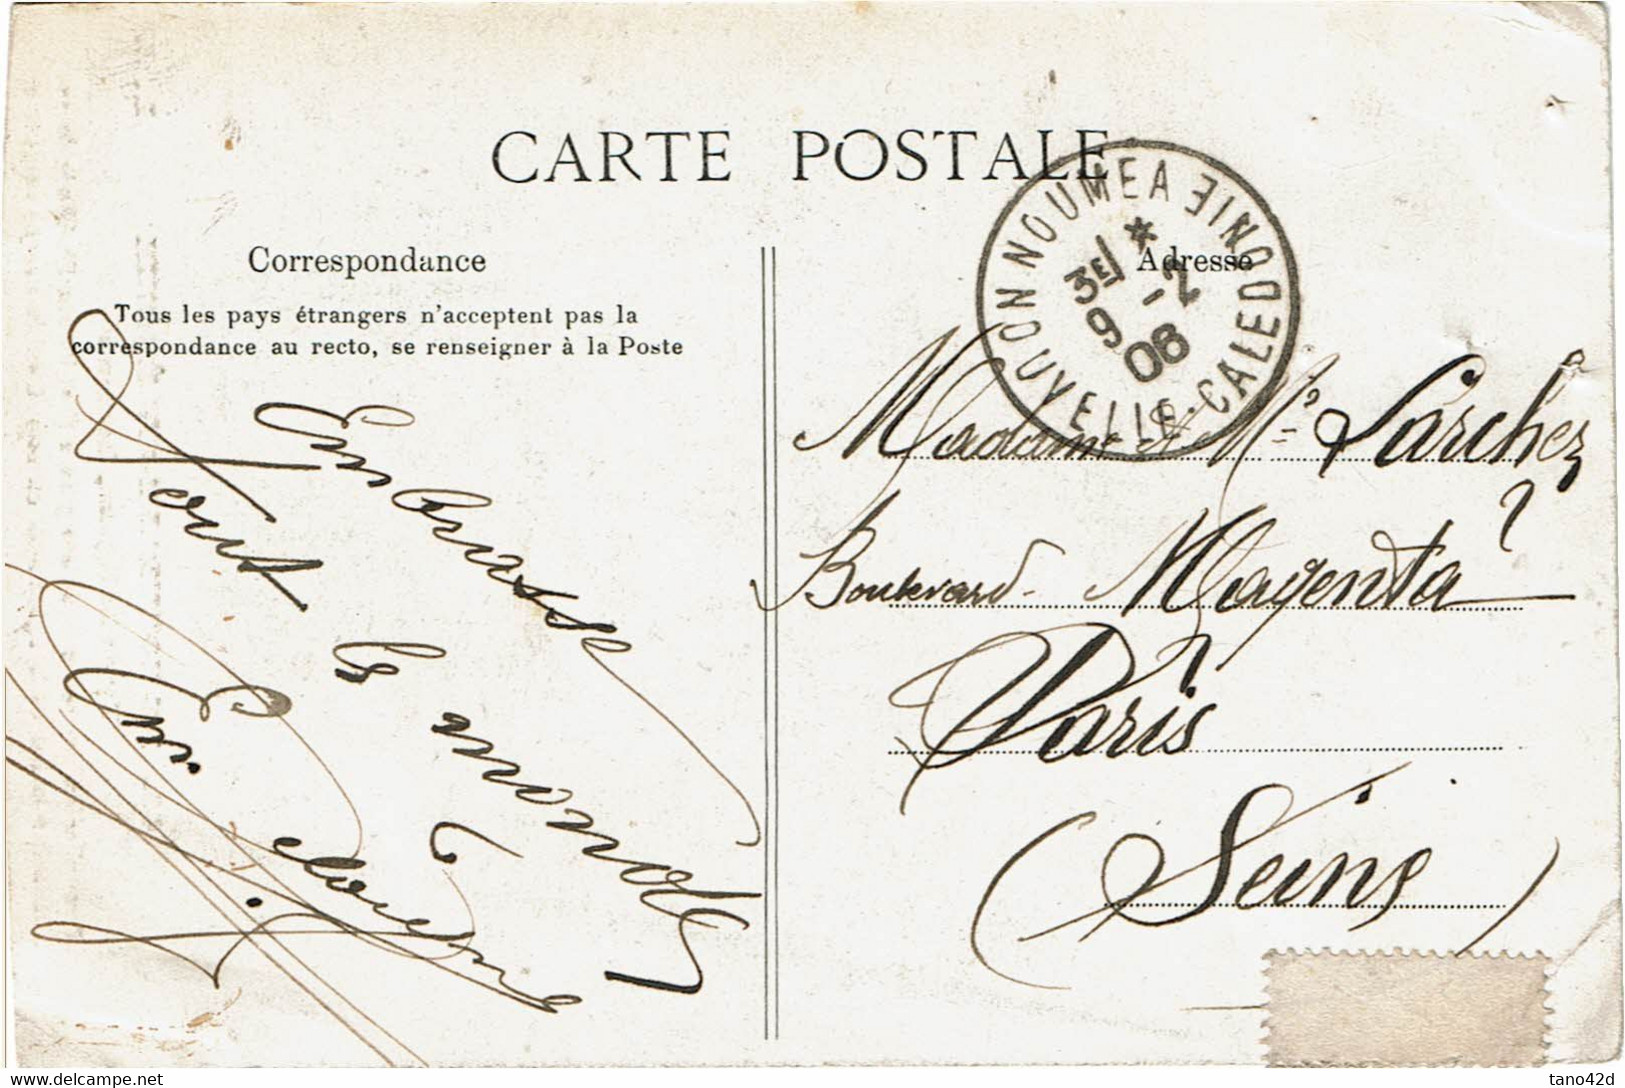 CARTE POSTALE
Correspondance
Tous les pays étrangers n'acceptent pas la
correspondance au recto, se renseigner à la Poste
Embrasse
tout le monde
Adresse
NOUMEA
NOUVELLE-CALEDONIE
3E/ *
9 -2
08
Madame et Mr Larcher
Boulevard Magenta
Paris
(Seine)
www.delcampe.net
tano42d